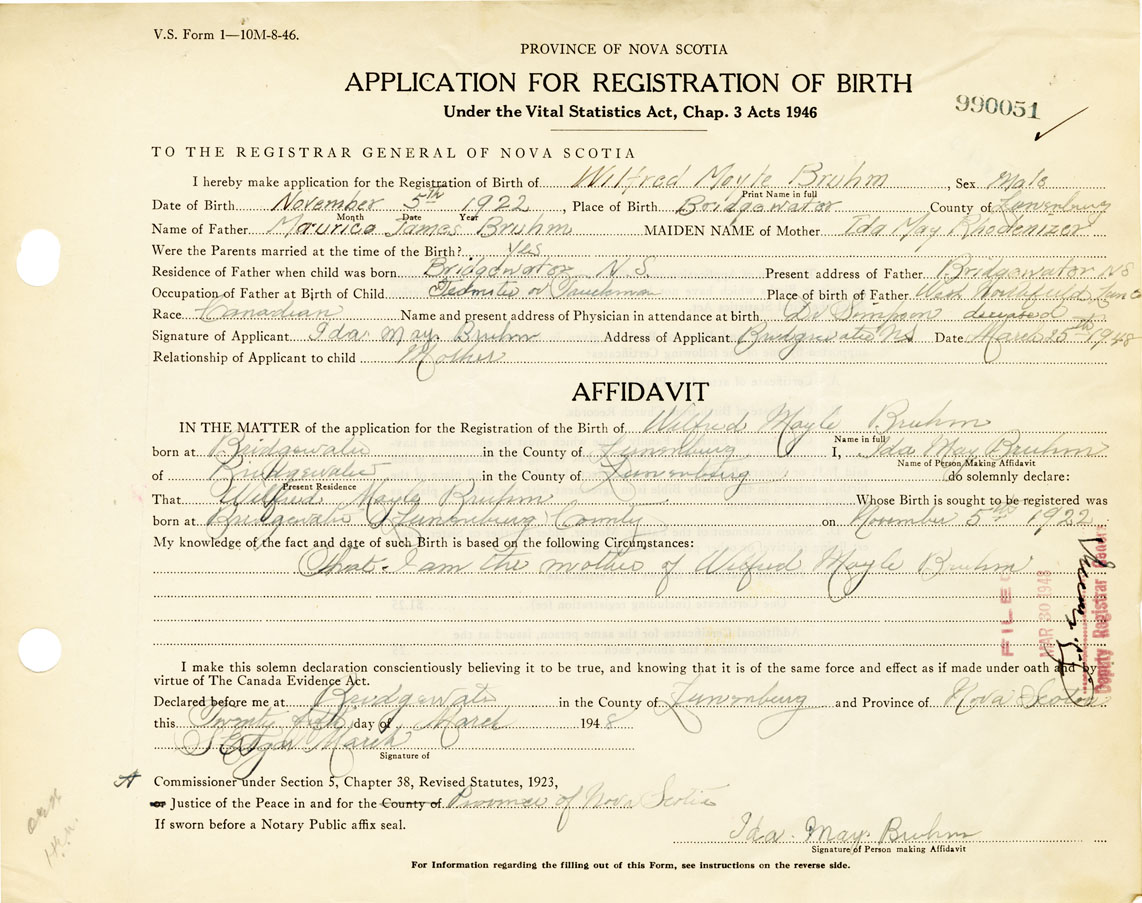 V.S. Form 1—10M-8-46.
PROVINCE OF NOVA SCOTIA
APPLICATION FOR REGISTRATION OF BIRTH
Under the Vital Statistics Act, Chap. 3 Acts 1946
990051
TO THE REGISTRAR GENERAL OF NOVA SCOTIA
I hereby make application for the Registration of Birth of Wilfred Moyle Bruhm, Sex Male
Print Name in full
Date of Birth November 5th 1922, Place of Birth Bridgewater County of Lunenburg
Month Date Year
Name of Father Maurice James Bruhm MAIDEN NAME of Mother Ida May Rhodenizer
Were the Parents married at the time of the Birth? Yes
Residence of Father when child was born Bridgewater N.S. Present address of Father Bridgewater NS
Occupation of Father at Birth of Child or Truckman Place of birth of Father West Northfield Lun Co
Race Canadian Name and present address of Physician in attendance at birth Dr Simpson deceased
Signature of Applicant Ida May Bruhm Address of Applicant Bridgewater NS Date March 25th 1948
Relationship of Applicant to child Mother
AFFIDAVIT
IN THE MATTER of the application for the Registration of the Birth of Wilfred Moyle Bruhm
Name in full
born at Bridgewater in the County of Lunenburg I, Ida May Bruhm
Name of Person Making Affidavit
of Bridgewater in the County of Lunenburg do solemnly declare:
Present Residence
That Wilfred Moyle Bruhm Whose Birth is sought to be registered was
born at Bridgewater Lunenburg County on November 5th 1922
My knowledge of the fact and date of such Birth is based on the following Circumstances:
That I am the mother of Wilfred Moyle Bruhm
FILED
MAR 30 1948
Deputy Registrar General
I make this solemn declaration conscientiously believing it to be true, and knowing that it is of the same force and effect as if made under oath and by
virtue of The Canada Evidence Act.
Declared before me at Bridgewater in the County of Lunenburg and Province of Nova Scotia
this Twenty fifth day of March 1948
March
Signature of
A Commissioner under Section 5, Chapter 38, Revised Statutes, 1923,
or Justice of the Peace in and for the County of Province of Nova Scotia
If sworn before a Notary Public affix seal.
Ida May Bruhm
Signature of Person making Affidavit
For Information regarding the filling out of this Form, see instructions on the reverse side.